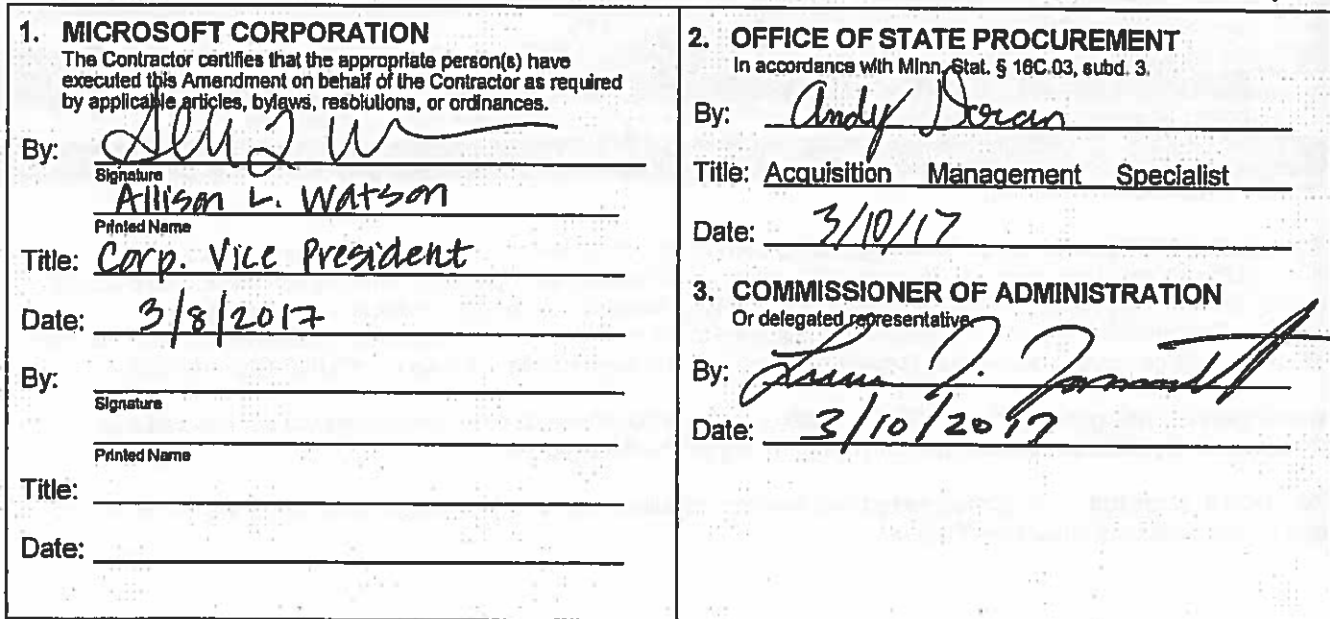 1. MICROSOFT CORPORATION
The Contractor certifies that the appropriate person(s) have
executed this Amendment on behalf of the Contractor as required
by applicable articles, bylaws, resolutions, or ordinances.
By:
Signature
Allison L. Watson
Printed Name
Title: Corp. Vice President
Date: 3/8/2017
By:
Signature
Printed Name
Title:
Date:
2. OFFICE OF STATE PROCUREMENT
In accordance with Minn. Stat. § 16C.03, subd. 3.
By: Andy Doran
Title: Acquisition Management Specialist
Date: 3/10/17
3. COMMISSIONER OF ADMINISTRATION
Or delegated representative
By:
Date: 3/10/2017